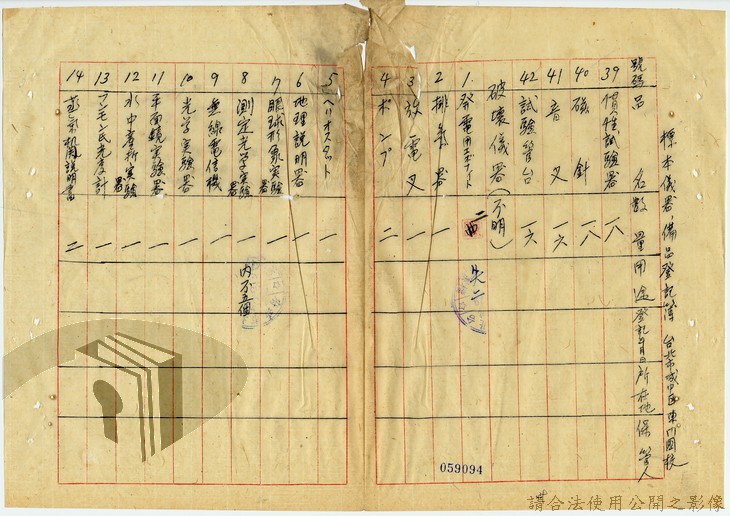 標本儀器、備品登記簿 台北市城中區東門國校
號碼 品名 數量 用途 登記年月日 所在地 保管人
39 慣性試驗器 一八
40 磁針 一八
41 音叉 一六
42 試驗管台 一六
破壞儀器(不明)
1. 發電用エボナイト 二 失二
2 排氣器 一
3 放電叉 一
4 ポンプ 二
5 ヘリオスタット 一
6 地理說明器 一
7 眼球形象實驗器 一
8 測定光學實驗器 一 內不五個
9 無線電信機 一
10 光学実驗器 一
11 平面鏡実驗器 一
12 水中產析実驗器 一
13 ブンモン氏光度計 一
14 蒸氣机關說明書 二
059094
請合法使用公開之影像